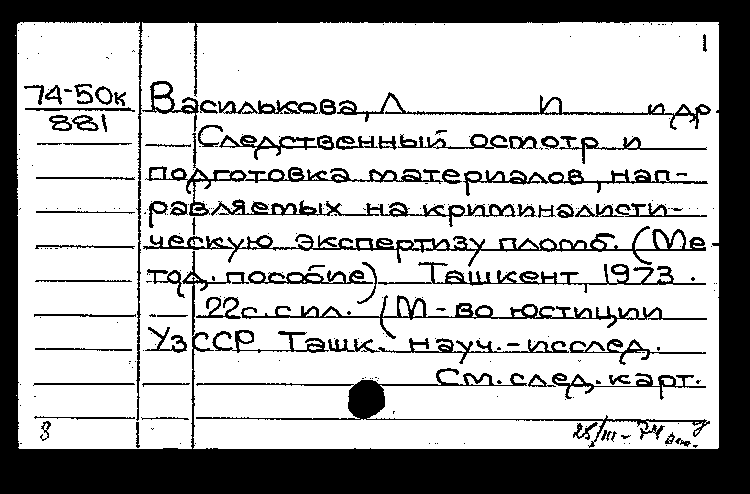 1
74-50к Василькова, Л И и др.
881
Следственный осмотр и
подготовка материалов, нап-
равляемых на криминалисти-
ческую экспертизу пломб. (Ме-
тод. пособие) Ташкент, 1973.
22с. с ил. (М-во юстиции
УзССР. Ташк. науч.-исслед.
См. след. карт.
8 25/III-74